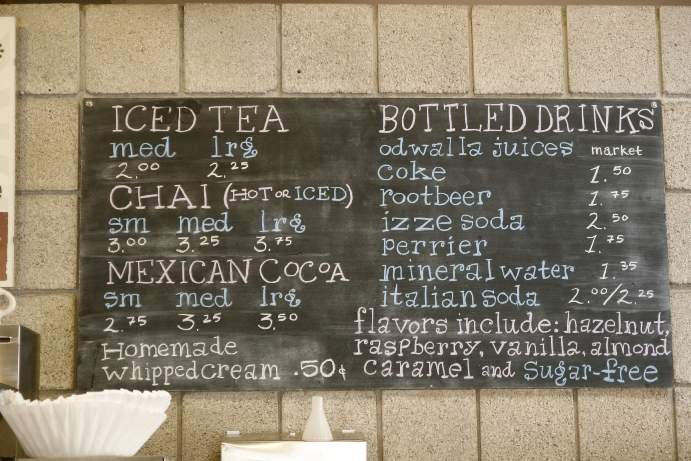 ICED TEA
med lrg
2.00 2.25
CHAI (HOT OR ICED)
sm med lrg
3.00 3.25 3.75
MEXICAN COCOA
sm med lrg
2.75 3.25 3.50
Homemade
whipped cream .50¢
BOTTLED DRINKS
odwalla juices market
coke 1.50
rootbeer 1.75
izze soda 2.50
perrier 1.75
mineral water 1.35
italian soda 2.00/2.25
flavors include: hazelnut,
raspberry, vanilla, almond
caramel and sugar-free